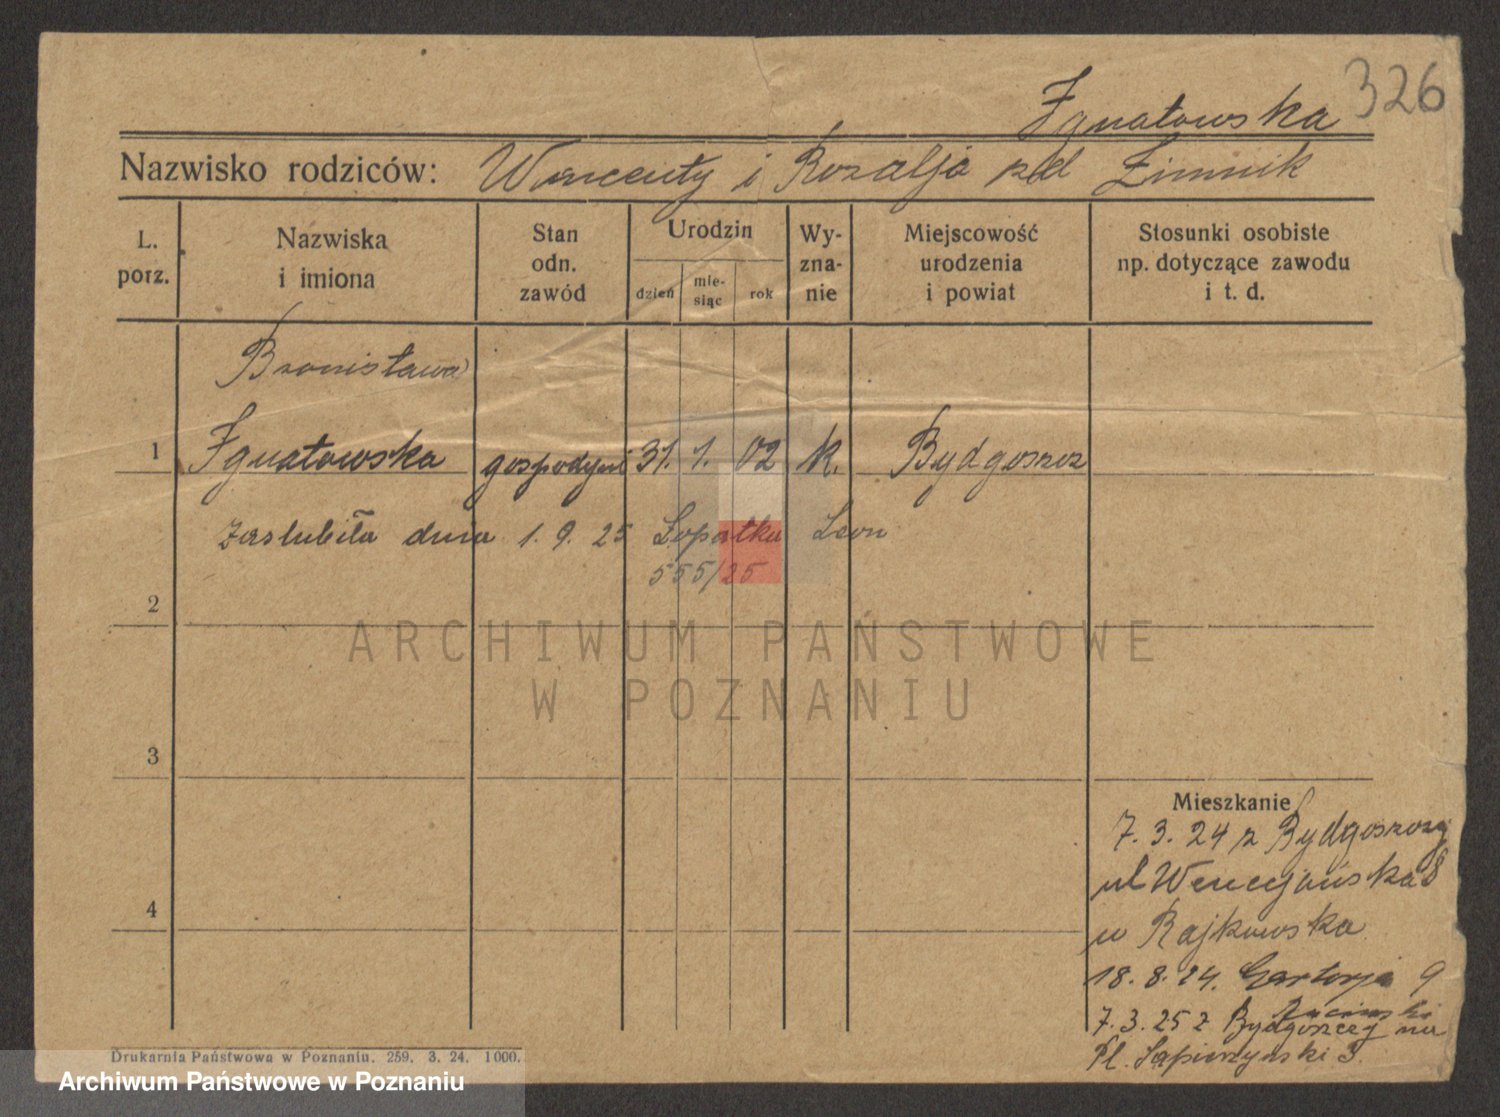 326
Ignatowska
Nazwisko rodziców: Wincenty i Rozalja zd Zimnik
L. porz.
Nazwiska i imiona
Stan odn. zawód
Urodzin
dzień
mie-siąc
rok
Wy-zna-nie
Miejscowość urodzenia i powiat
Stosunki osobiste np. dotyczące zawodu i t. d.
Bronisława
1 Ignatowska gospodyni 31. 1. 02 k. Bydgoszcz
zaslubiła dnia 1. 9. 25 Łopatka Leon
555/25
2
3
4
ARCHIWUM PAŃSTWOWE
W POZNANIU
Mieszkanie
7. 3. 24 z Bydgoszczy
ul Wenecjańska 8
u Rajkowska
18. 8. 24. 9
7. 3. 25 z Bydgoszczy na
Pl. Sapieżyński 3.
Drukarnia Państwowa w Poznaniu. 259. 3. 24. 1000.
Archiwum Państwowe w Poznaniu